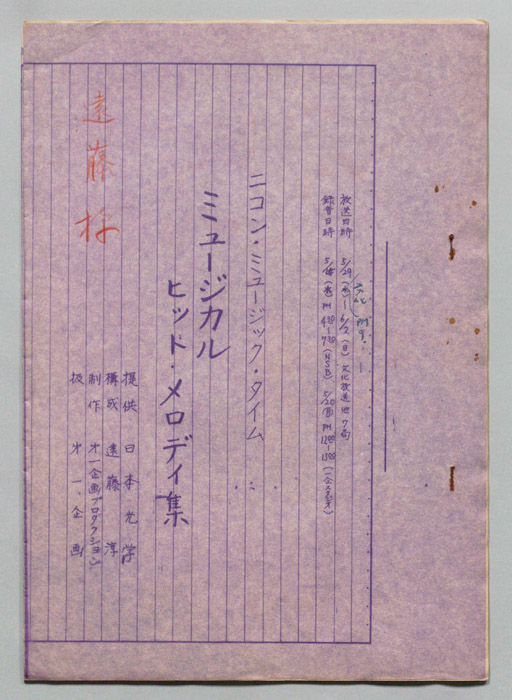 放送日時 5/29(水)―6/2(日) 文化放送他7局
録音日時 5/18(土) PM 4:30―7:30 (NSB) 5/20(月) PM 12:00―15:00
ニコン・ミュージック・タイム
ミュージカル
ヒット・メロディ集
提供 日本光学
構成 遠藤 淳
制作 才一企画プロダクション
扱 才一企画
遠藤様